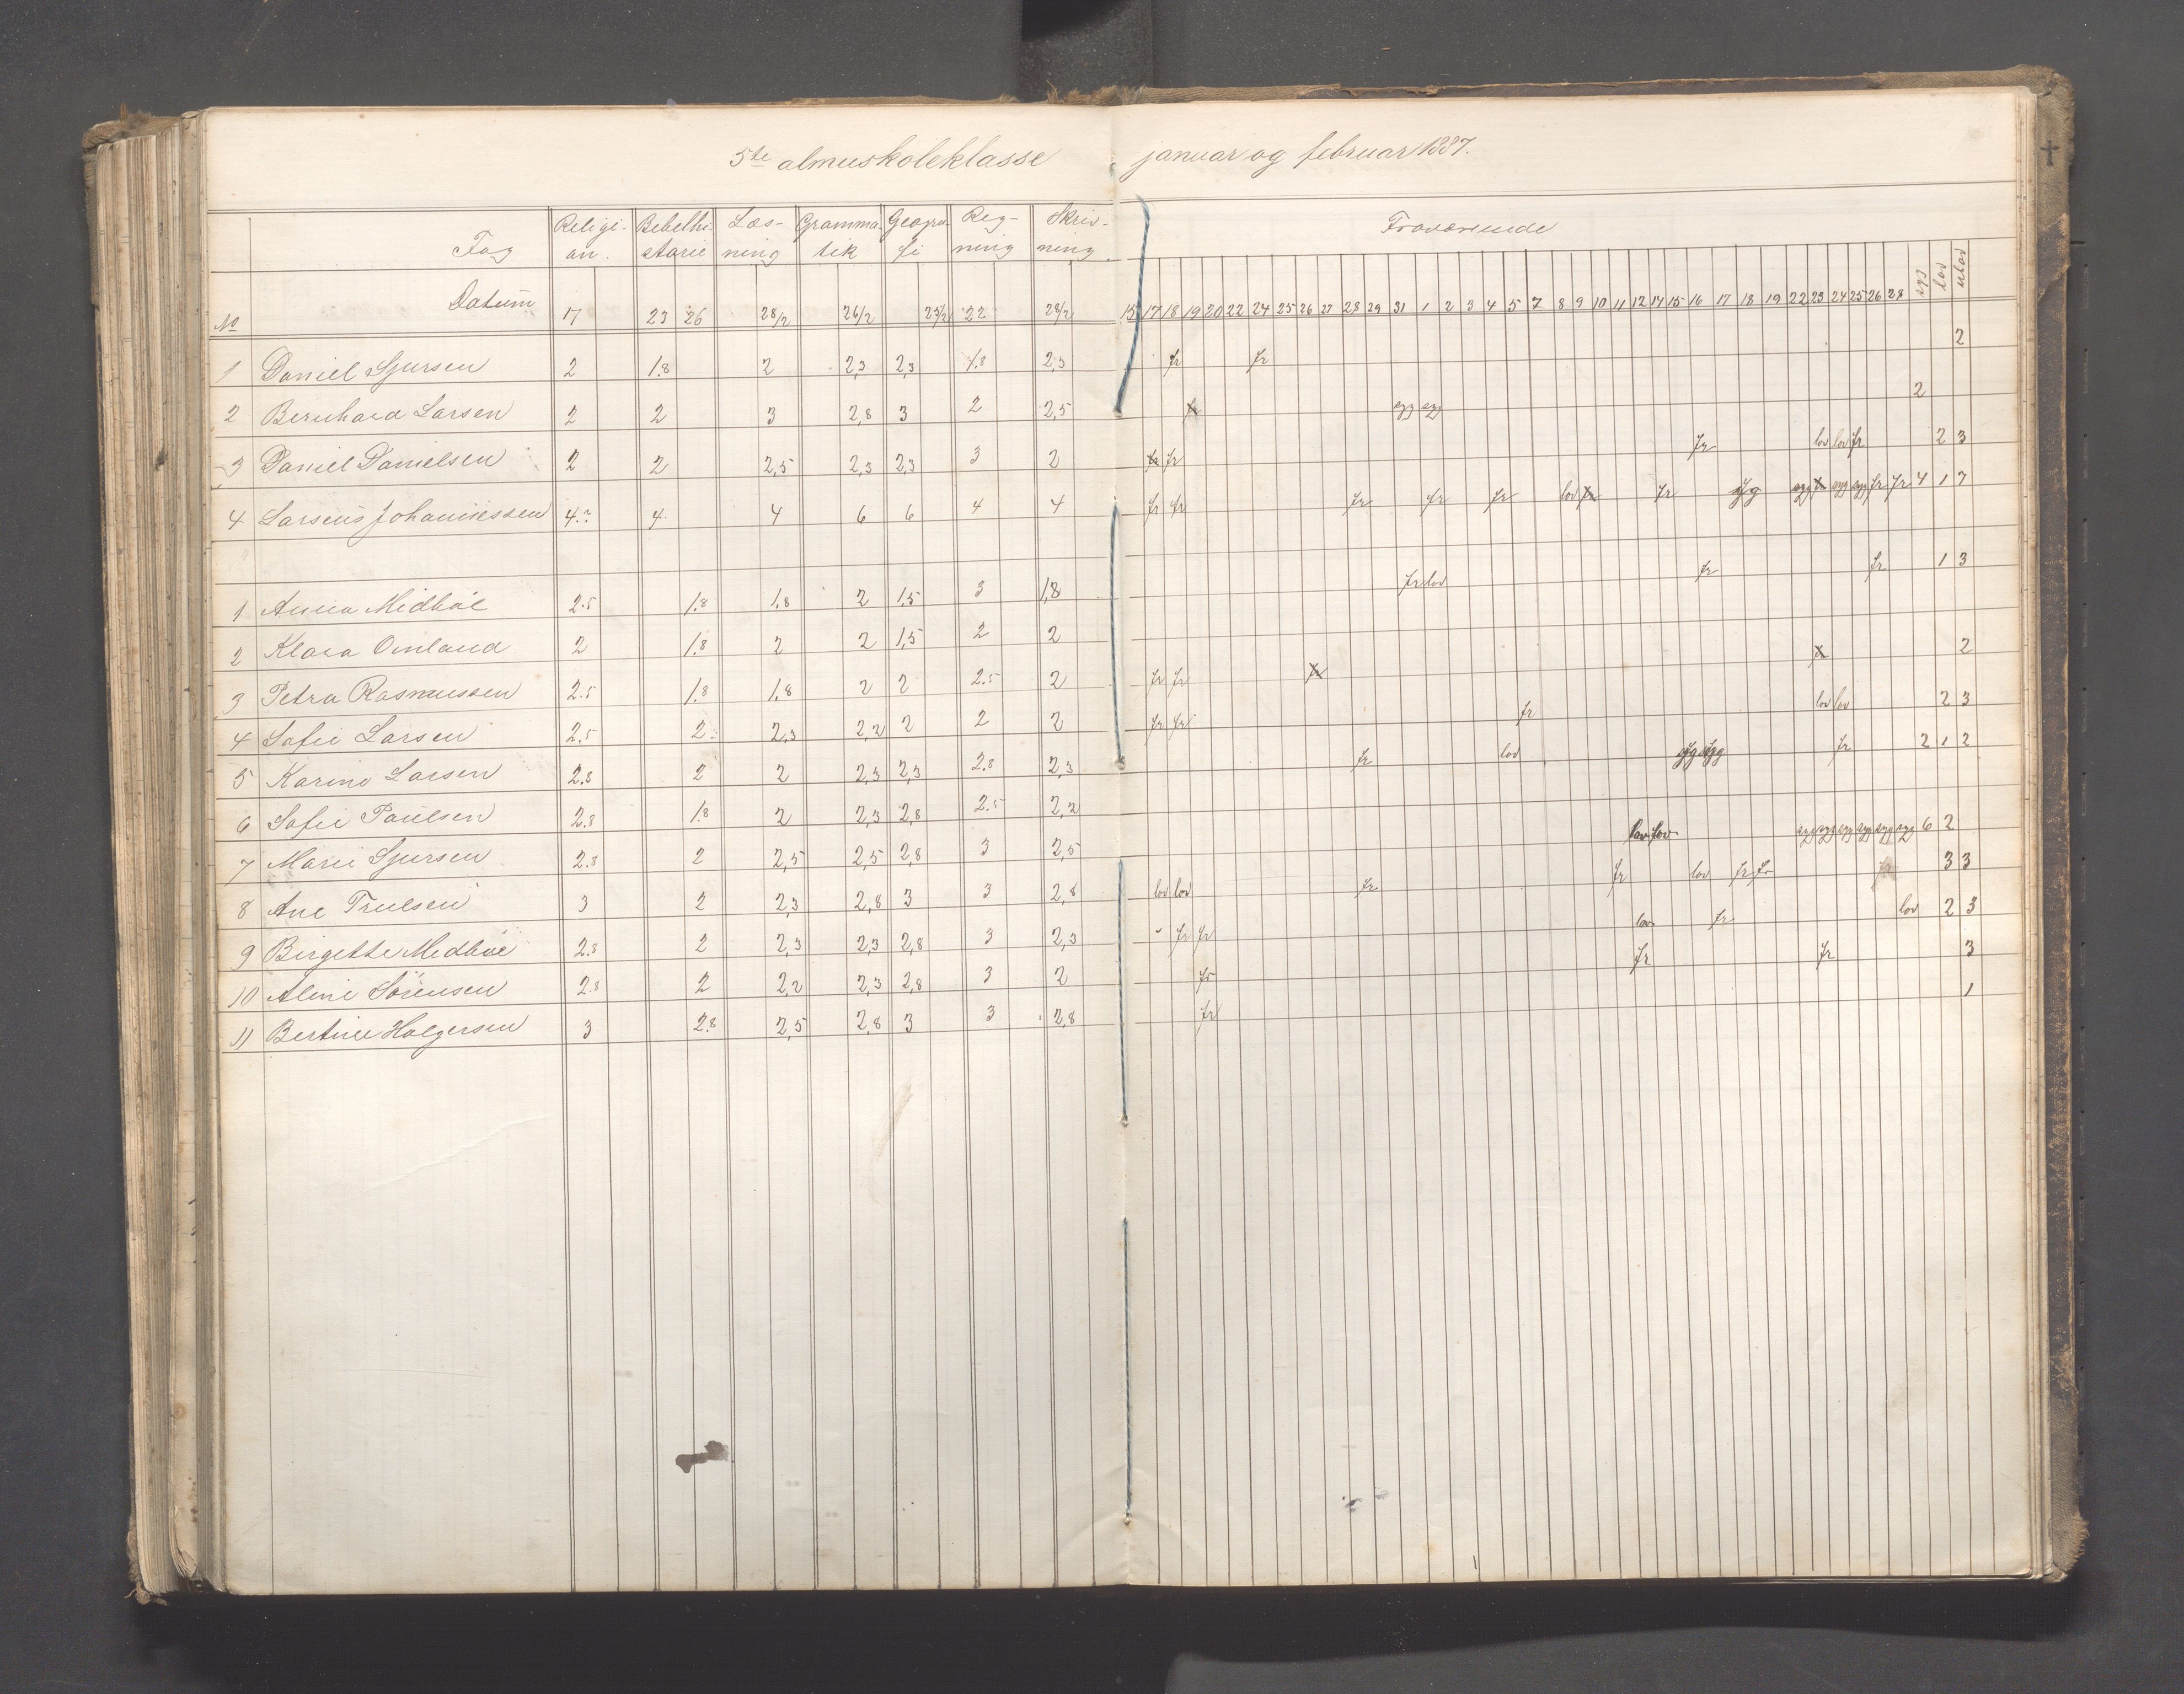 5te almuskoleklasse januar og februar 1887.
Fag Religi- Bibelhi- Læs- Gramma- Geogra- Reg- Skriv- Fraværende
on. storie ning tik fi ning ning
syg lov ulov
No Datum 17 23 26 28/2 26/2 25/2 22 28/2 15 17 18 19 20 22 24 25 26 27 28 29 31 1 2 3 4 5 7 8 9 10 11 12 14 15 16 17 18 19 22 23 24 25 26 28
1 Daniel Sjursen 2 1.8 2 2,3 2,3 1.8 2,3 fr fr 2
2 Bernhard Larsen 2 2 3 2,8 3 2 2,5 fr syg syg 2
3 Daniel Danielsen 2 2 2,5 2,3 2,3 3 2 fr fr fr lov lov fr 2 3
4 Larseus Johannessen 4.? 4 4 6 6 4 4 fr fr fr fr fr lov fr fr syg syg fr syg syg fr fr 4 1 7
1 Anna Midböe 2.5 1.8 1.8 2 1,5 3 1,8 fr lov fr fr 1 3
2 Klara Omland 2 1.8 2 2 1,5 2 2
3 Petra Rasmussen 2.5 1.8 1.8 2 2 2.5 2 fr fr fr fr 2
4 Sofie Larsen 2.5 2 2,3 2,2 2 2 2 fr fr fr lov lov 2 3
5 Karine Larsen 2.8 2 2 2,3 2,3 2.8 2,3 fr lov syg syg fr 2 1 2
6 Sofie Paulsen 2.8 1.8 2 2,3 2,8 2.5 2,2
7 Marie Sjursen 2.8 2 2,5 2,5 2,8 3 2,5 lov lov syg syg syg syg syg syg 6 2
8 Ane Truelsen 3 2 2,3 2,8 3 3 2,8 lov lov fr fr lov fr fr fr 3 3
9 Birgette Medböe 2.8 2 2,3 2,3 2,8 3 2,3 fr fr lov fr lov 2 3
10 Aline Sörensen 2.8 2 2,2 2,3 2,8 3 2 fr fr fr 3
11 Bertine Holgersen 3 2.8 2,5 2,8 3 3 2,8 fr 1